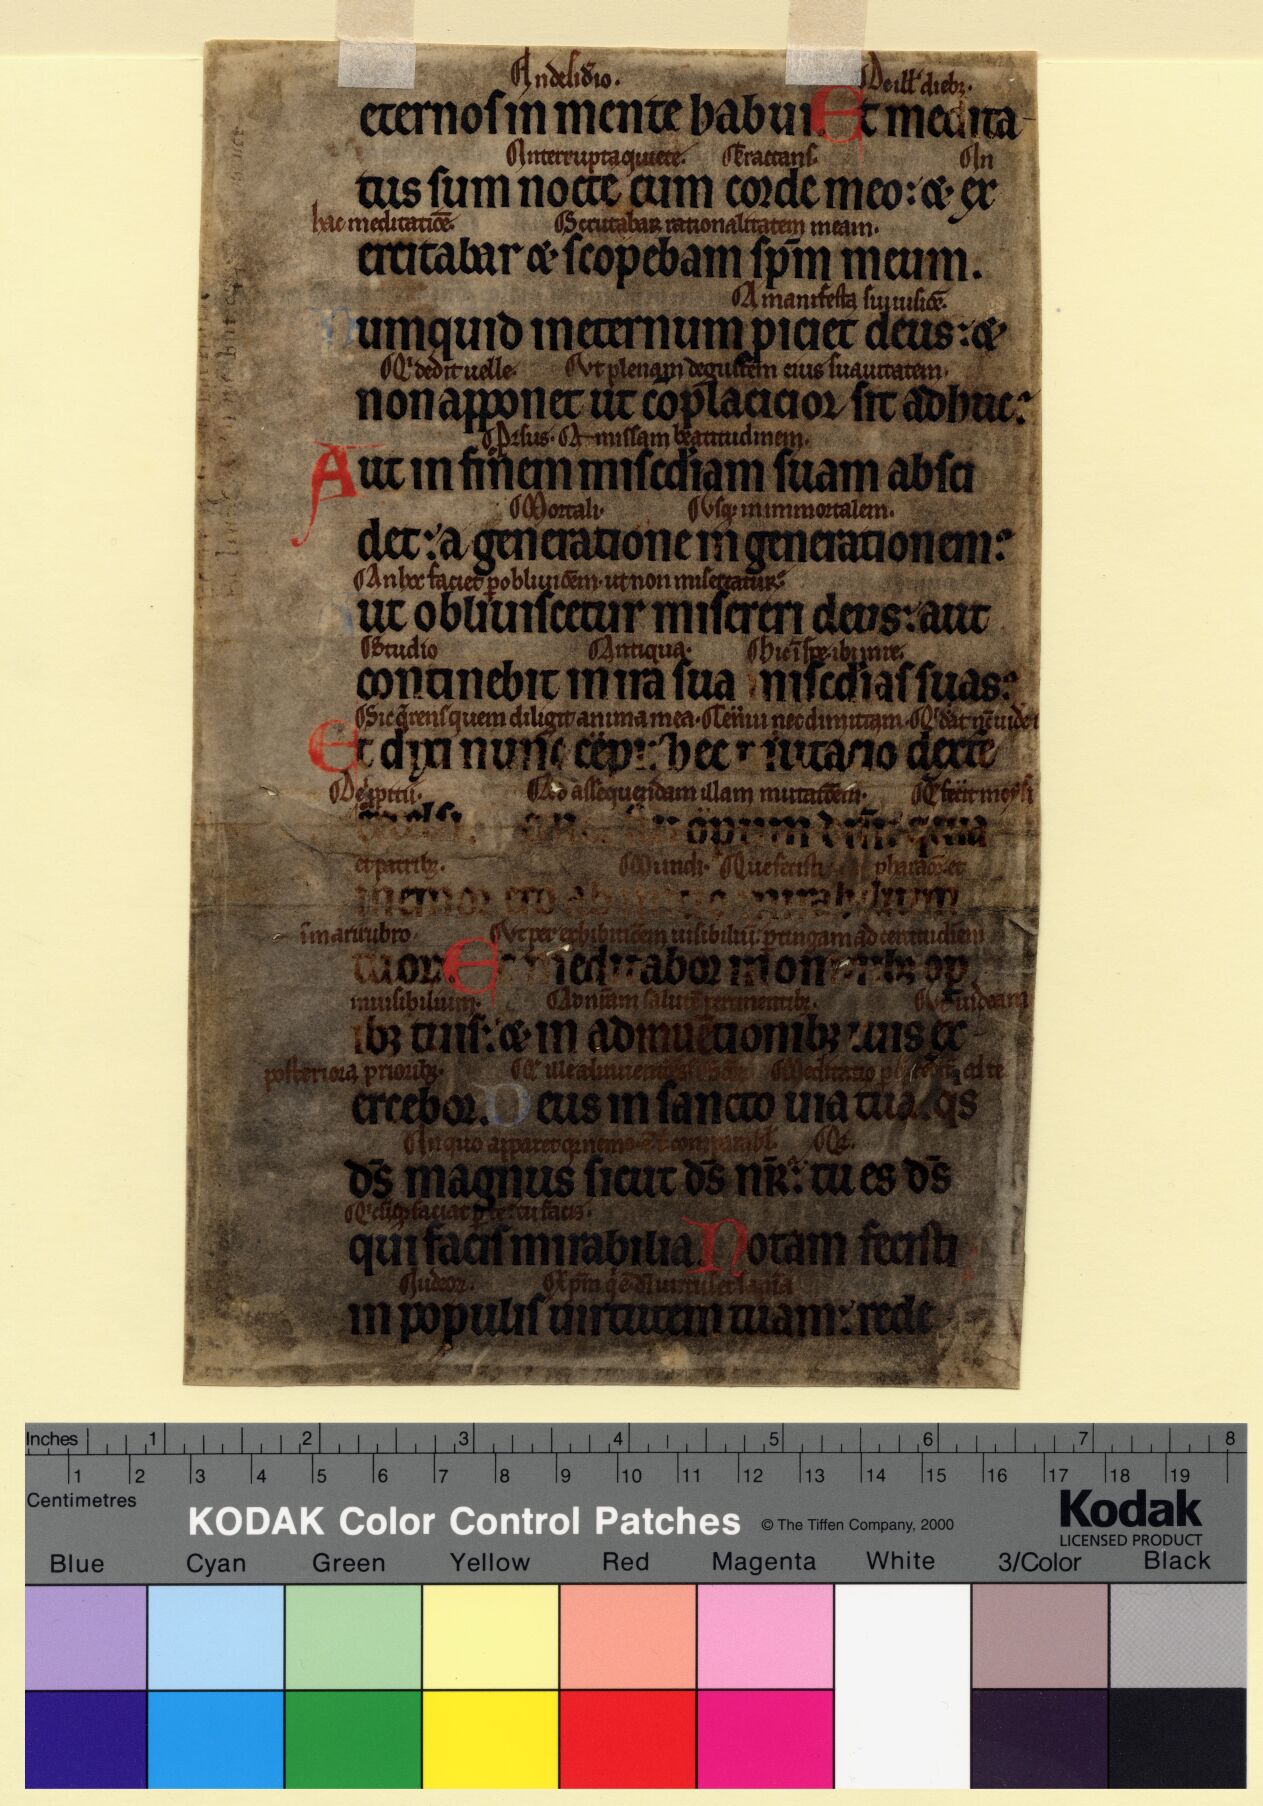 In desiderio. De ill' diebꝫ.
eternos in mente habui. Et medita
Interrupta quiete. Tractans. In
tus sum nocte cum corde meo: & ex
hac meditatiōe. Scrutabar rationalitatem meam.
ercitabar & scopebam sp̄m meum.
A manifesta sui uisiōe.
Numquid in eternum piciet deus: &
Qͥ dedit uelle. Ut plenam degustem eius suauitatem.
non apponet ut cōplacicior sit adhuc:
Prsus. A missam beatitudinem.
Aut in finem miscd̄iam suam absci
Mortali. Usqꝫ in immortalem.
det: a generatione in generationem:
An hoc faciet p obliuiōem. ut non misereatur:
Aut obliuiscetur misereri deus: aut
Studio Antiqua. hic ī spe. ibi in re.
continebit in ira sua miscd̄ias suas:
Sic q̄rens quem diligit anima mea. Tenui nec dimittam.
Et dixi nunc cepi: hec mutacio dexte
Ad assequendam illam mutatiōem. fecit moysi
opum dn̄i: quia
et patribꝫ. Mundi. Que fecisti pharaoni et
memor ero ab initio mirabilium
ī mari rubro Ut per exhibitiōem uisibiliū ptingam ad certitudinem
tuorꝫ. Et meditabor in omnibꝫ op
inuisibilium. Ad nr̄am salutē ptinentibꝫ. Ut uideam
ibꝫ tuis: & in adinuētionibꝫ tuis ex
posteriora prioribꝫ.
ercebor. Deus in sancto uia tua. qs
In quo apparet qͥ nemo Qͥ.
ds̄ magnus sicut ds̄ nr̄: tu es ds̄
qui facis mirabilia. Notam fecisti
Iudeorꝫ.
in populis uirtutem tuam: rede
Inches 1 2 3 4 5 6 7 8
1 2 3 4 5 6 7 8 9 10 11 12 13 14 15 16 17 18 19
Centimetres
KODAK Color Control Patches © The Tiffen Company, 2000 Kodak
LICENSED PRODUCT
Blue Cyan Green Yellow Red Magenta White 3/Color Black